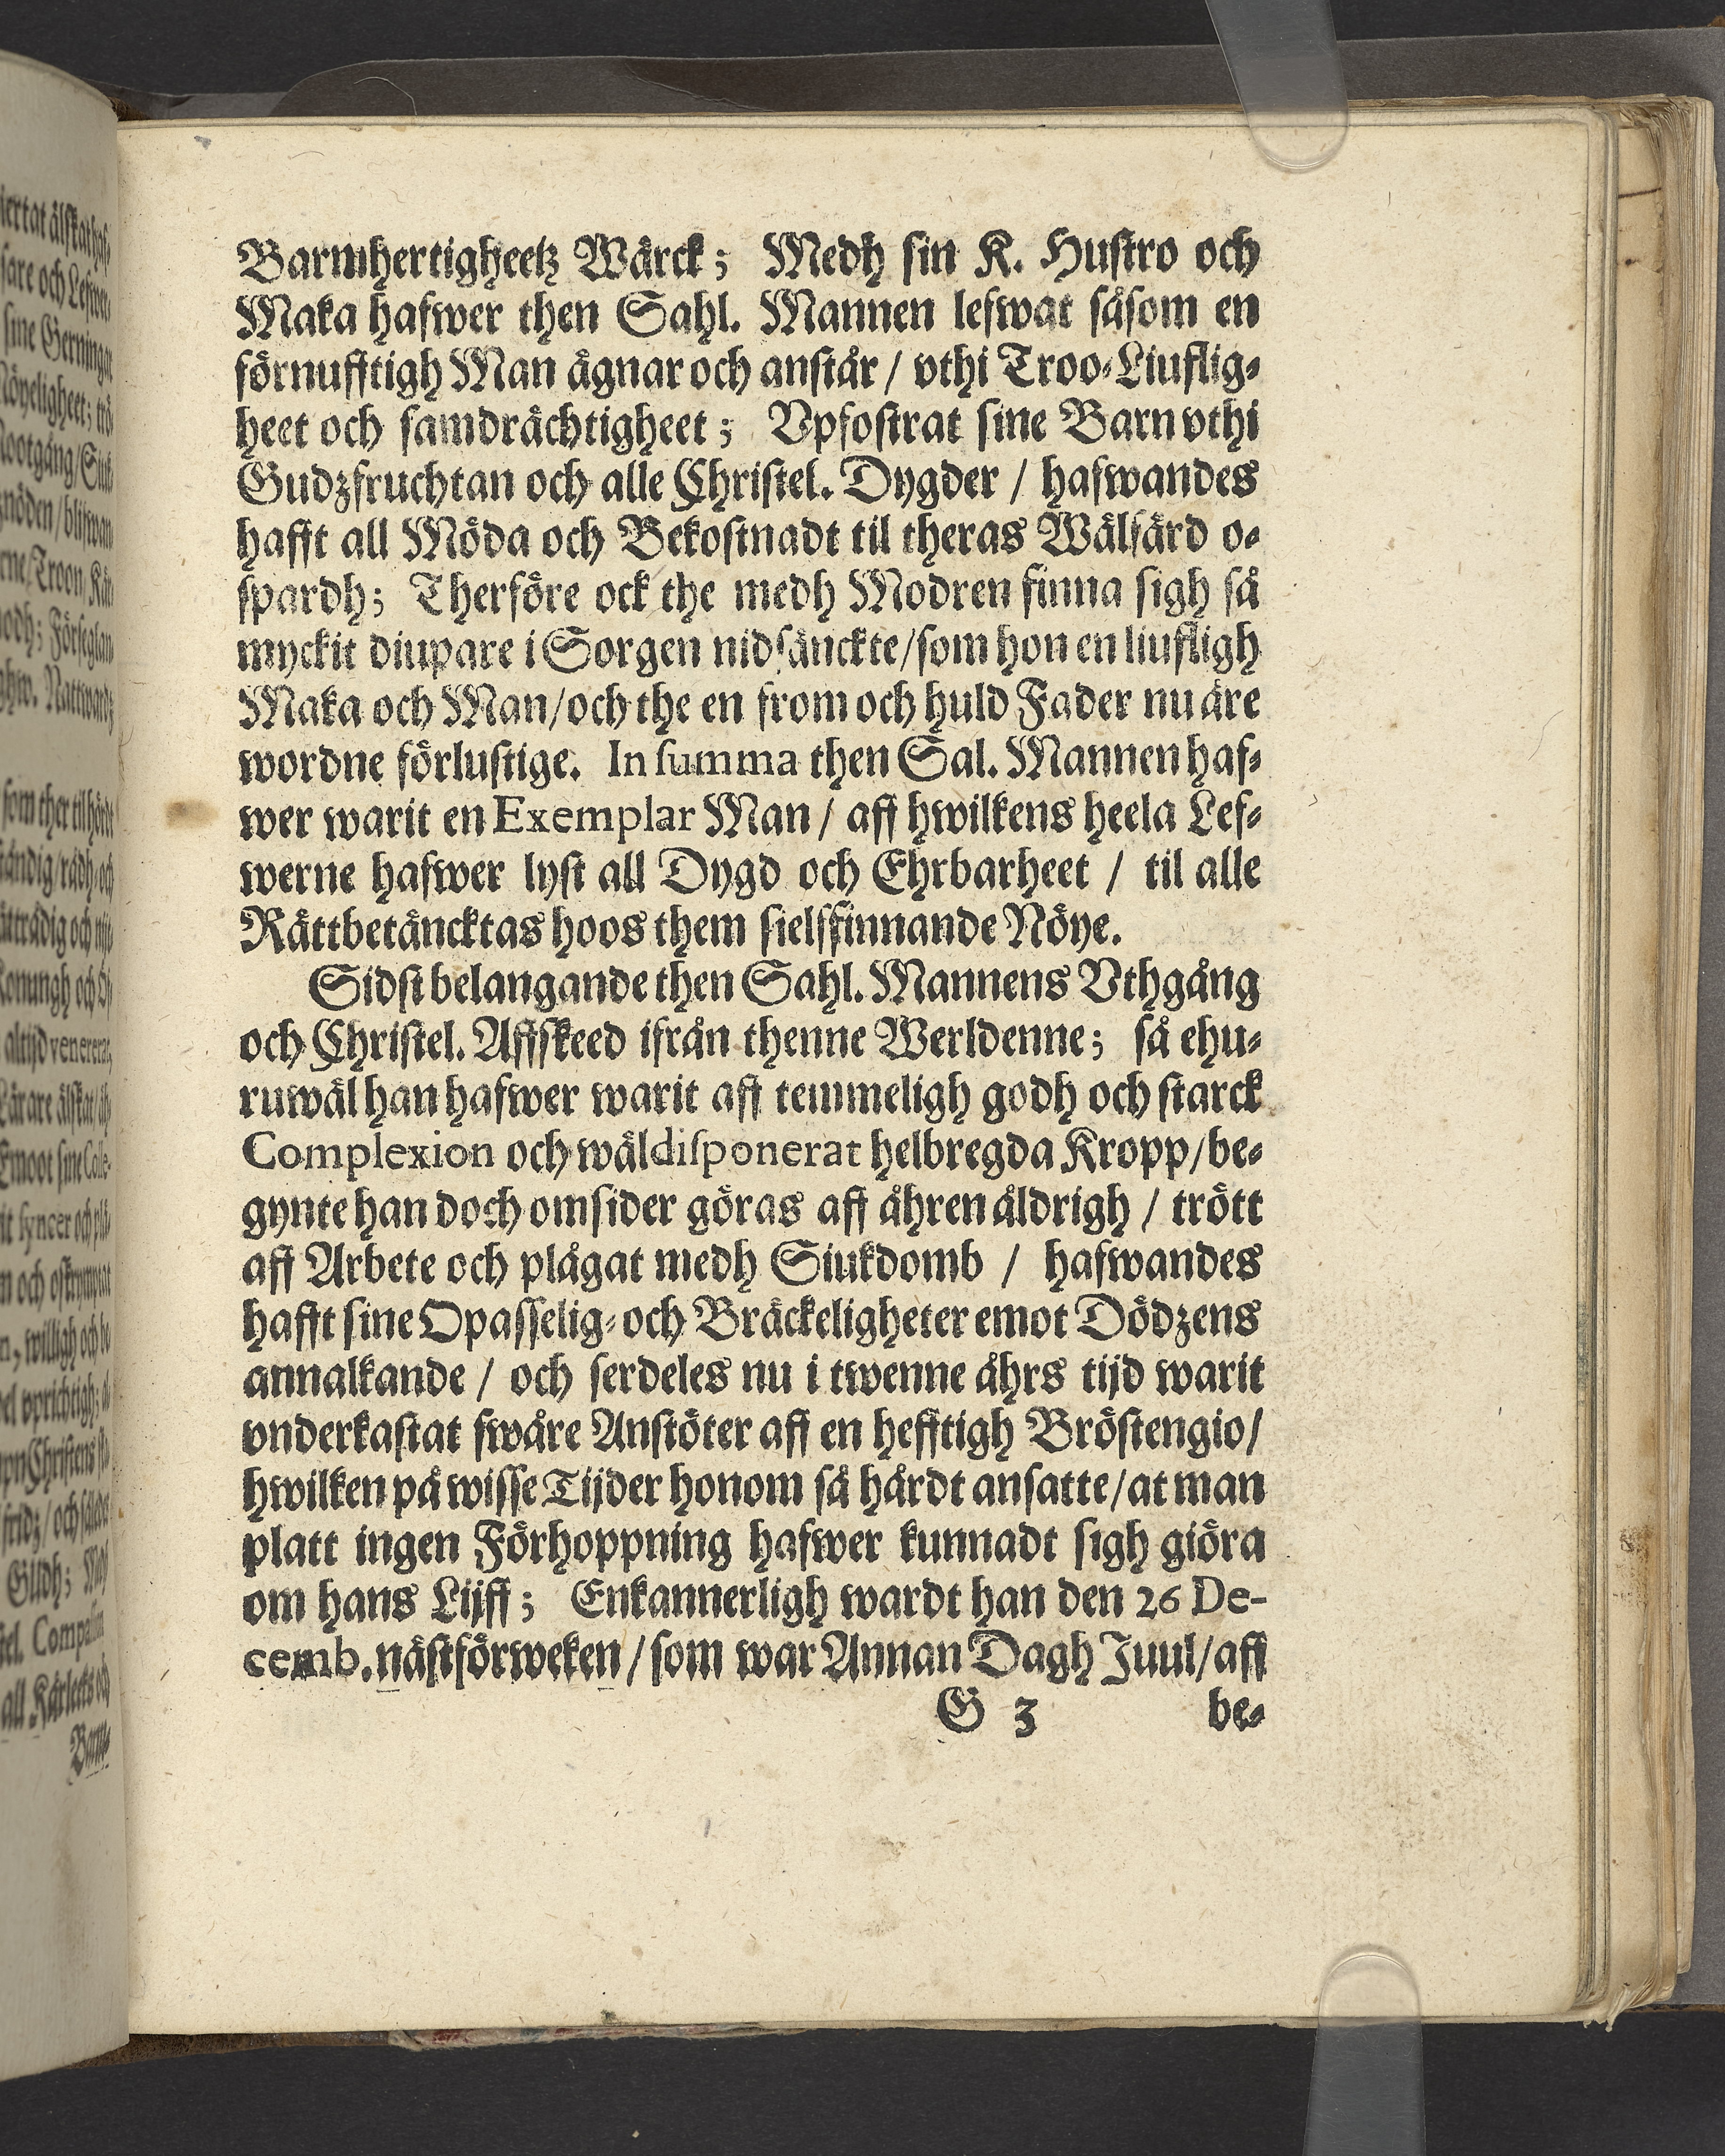 Barmhertigheetz Wärck; Medh sin K. Hustro och
Maka hafwer then Sahl. Mannen lefwat såsom en
förnufftigh Man ägnar och anstår / vthi Troo-Liuflig-
heet och samdrächtigheet; Vpfostrat sine Barn vthi
Gudzfruchtan och alle Christel. Dygder / hafwandes
hafft all Möda och Bekostnadt til theras Wälfärd o-
spardh; Therföre ock the medh Modren finna sigh så
myckit diupare i Sorgen nidsänckte/som hon en liufligh
Maka och Man/och the en from och huld Fader nu äre
wordne förlustige. In summa then Sal. Mannen haf-
wer warit en Exemplar Man / aff hwilkens heela Lef-
werne hafwer lyst all Dygd och Ehrbarheet / til alle
Rättbetäncktas hoos them sielffinnande Nöye.
Sidst belangande then Sahl. Mannens Vthgång
och Christel. Affskeed ifrån thenne Werldenne; så ehu-
ruwäl han hafwer warit aff temmeligh godh och starck
Complexion och wäldisponerat helbregda Kropp/be-
gynte han doch omsider göras aff åhren åldrigh / trött
aff Arbete och plågat medh Siukdomb / hafwandes
hafft sine Opasselig- och Bräckeligheter emot Dödzens
annalkande / och serdeles nu i twenne åhrs tijd warit
vnderkastat swåre Anstöter aff en hefftigh Bröstengio/
hwilken på wisse Tijder honom så hårdt ansatte/at man
platt ingen Förhoppning hafwer kunnadt sigh giöra
om hans Lijff; Enkannerligh wardt han den 26 De-
cemb. nästförweken / som war Annan Dagh Juul/aff
G 3 be-